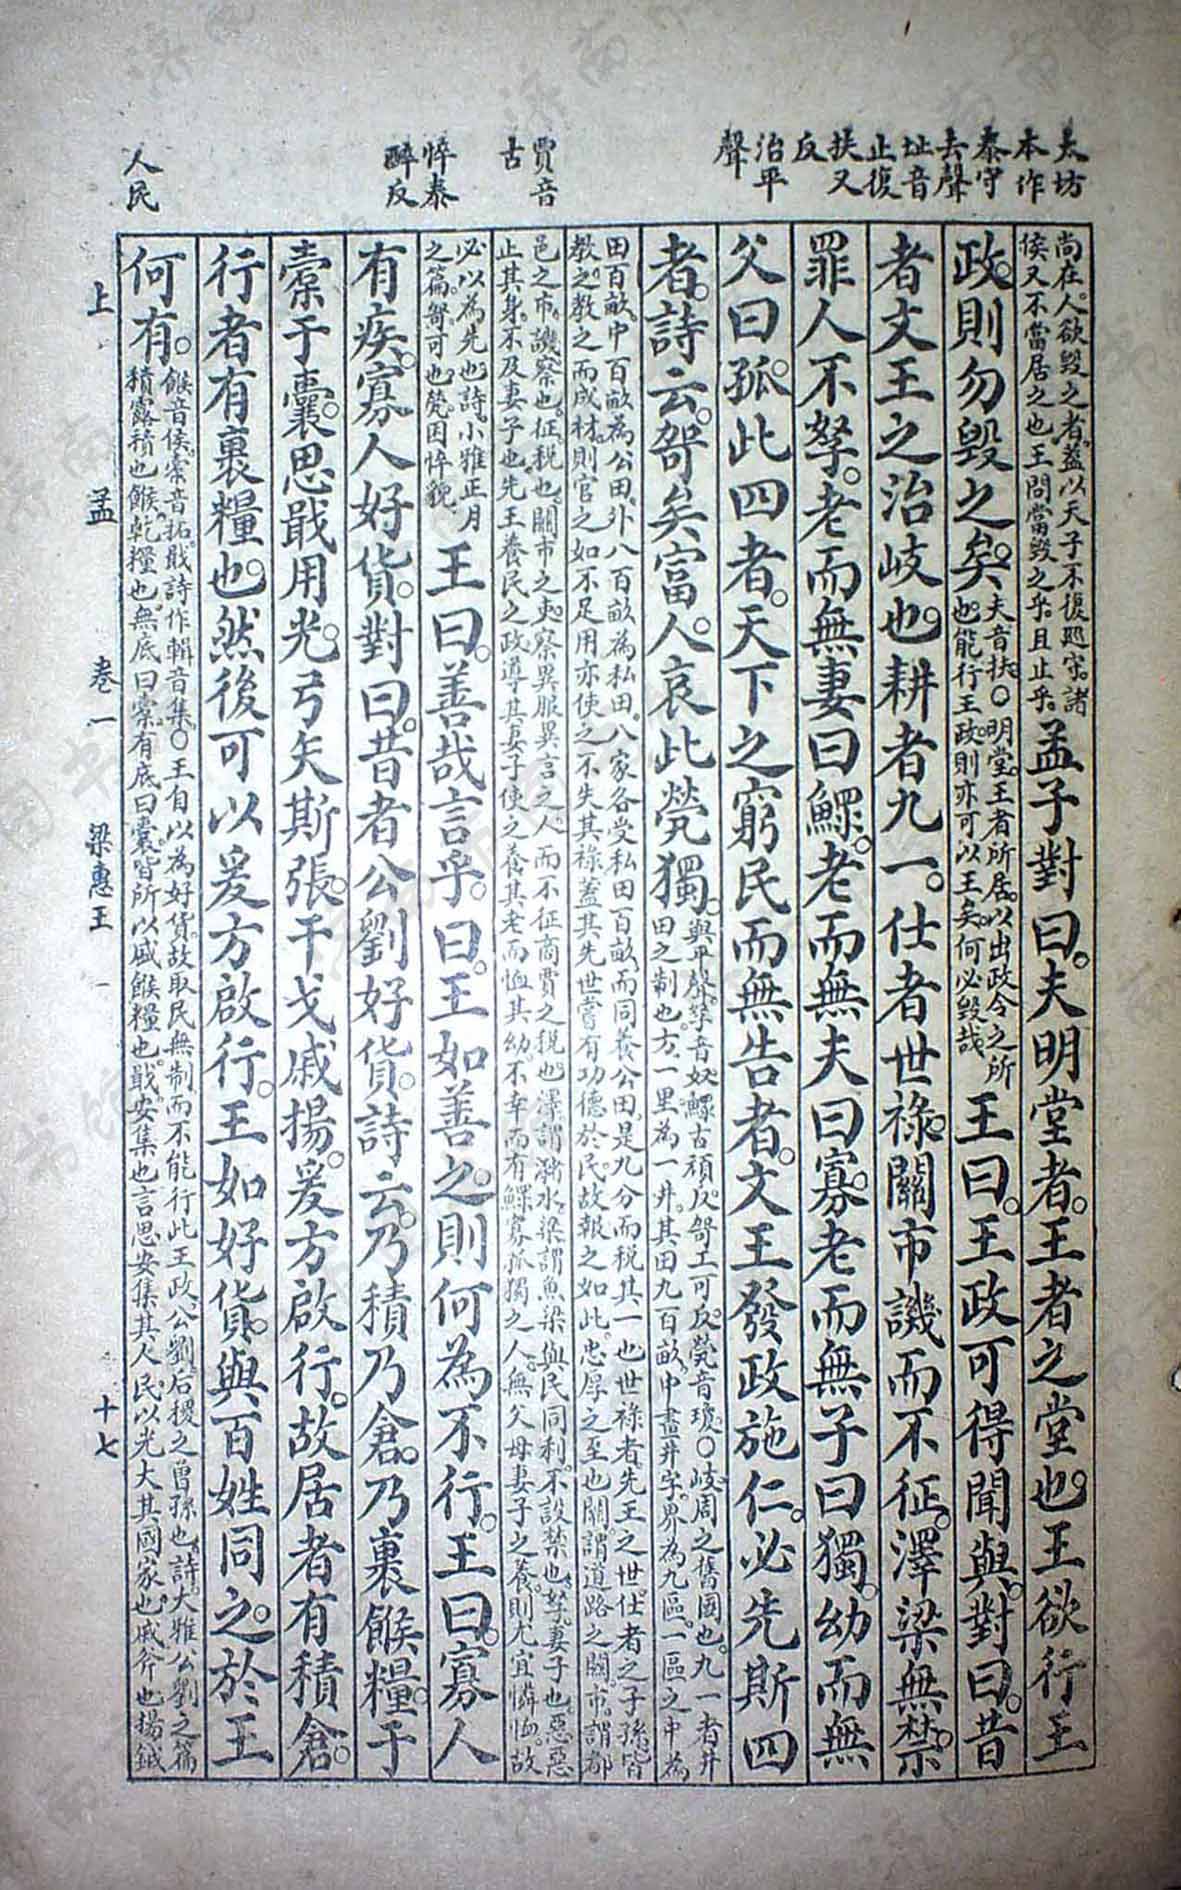 太坊
本作
泰守
去聲
址音
止復
扶又
反
治平
聲
賈音
古
悴秦
醉反
人民
尚在。人欲毀之者。蓋以天子不復巡守。諸
侯又不當居之也。王問當毀之乎。且止乎。
孟子對曰。夫明堂者。王者之堂也。王欲行王
政。則勿毀之矣。
夫音扶。○明堂。王者所居。以出政令之所
也。能行王政。則亦可以王矣。何必毀哉
王曰。王政可得聞與。對曰。昔
者文王之治岐也。耕者九一。仕者世祿。關市譏而不征。澤梁無禁。
罪人不孥。老而無妻曰鰥。老而無夫曰寡。老而無子曰獨。幼而無
父曰孤。此四者。天下之窮民而無告者。文王發政施仁。必先斯四
者。詩云。哿矣富人。哀此煢獨。
與平聲。孥音奴。鰥古頑反。哿工可反。煢音瓊。○岐周之舊國也。九一者井
田之制也。方一里為一井。其田九百畝。中畫井字。界為九區。一區之中為
田百畝。中百畝為公田。外八百畝為私田。八家各受私田百畝。而同養公田。是九分而稅其一也。世祿者。先王之世。仕者之子孫皆
教之。教之而成材。則官之。如不足用。亦使之不失其祿。蓋其先世嘗有功德於民。故報之如此。忠厚之至也。關。謂道路之關。市。謂都
邑之市。譏。察也。征。稅也。關市之吏。察異服異言之人。而不征商賈之稅也。澤謂瀦水。梁謂魚梁。與民同利。不設禁也。孥。妻子也。惡惡
止其身。不及妻子也。先王養民之政。導其妻子。使之養其老而恤其幼。不幸而有鰥寡孤獨之人。無父母妻子之養。則尤宜憐恤。故
必以為先也。詩。小雅正月
之篇。哿。可也。煢。困悴貌
王曰。善哉言乎。曰。王如善之。則何為不行。王曰。寡人
有疾。寡人好貨。對曰。昔者公劉好貨。詩云。乃積乃倉。乃裹餱糧。于
橐于囊。思戢用光。弓矢斯張。干戈戚揚。爰方啟行。故居者有積倉。
行者有裹糧也。然後可以爰方啟行。王如好貨。與百姓同之。於王
何有。
餱音侯。橐音拓。戢詩作輯。音集。○王自以為好貨。故取民無制。而不能行此王政。公劉。后稷之曾孫也。詩。大雅公劉之篇
積。露積也。餱。乾糧也。無底曰橐。有底曰囊。皆所以盛餱糧也。戢。安集也。言思安集其人民。以光大其國家也。戚。斧也。揚。鉞
上　孟　卷一　梁惠王　一　十七